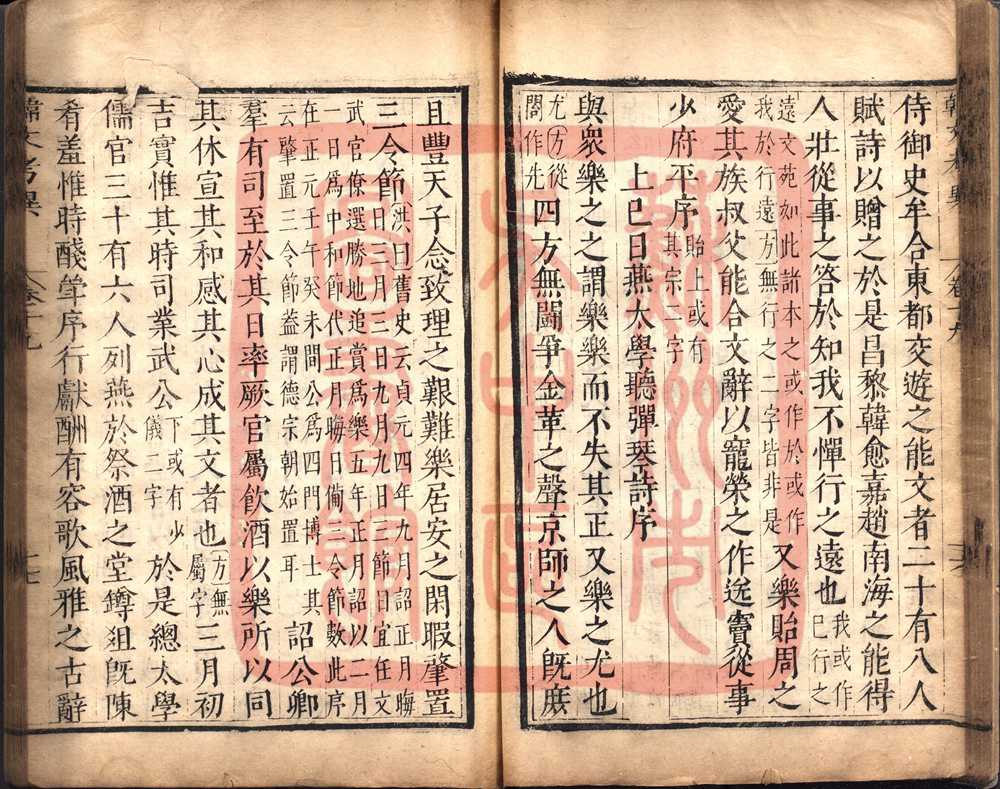 侍御史牟合東都交遊之能文者二十有八人
賦詩以贈之於是昌黎韓愈嘉趙南海之能得
人壯從事之答於知我不憚行之遠也我或作已行之
遠文苑如此諸本之或作於或作我於行遠方無行之二字皆非是又樂貽周之
愛其族叔父能合文辭以寵榮之作送竇從事
少府平序貽上或有其宗二字
上巳日燕太學聽彈琴詩序
與衆樂之之謂樂樂而不失其正又樂之尤也
尤方從閣作先四方無鬭爭金革之聲京師之人旣庶
且豐天子念致理之艱難樂居安之閑暇肇置
三令節洪曰舊史云貞元四年九月詔正月晦日三月三日九月九日三節日宜任文
武官僚選勝地追賞爲樂五年正月詔以二月一日爲中和節代正月晦日備三令節數此序
在正元壬午癸未間公爲四門博士其云肇置三令節益謂德宗朝始置耳詔公卿
羣有司至於其日率厥官屬飮酒以樂所以同
其休宣其和感其心成其文者也方無屬字三月初
吉實惟其時司業武公下或有少儀二字於是總太學
儒官三十有六人列燕於祭酒之堂罇俎旣陳
肴羞惟時醆斝序行獻酬有容歌風雅之古辭
韓文考異
卷十九
十七